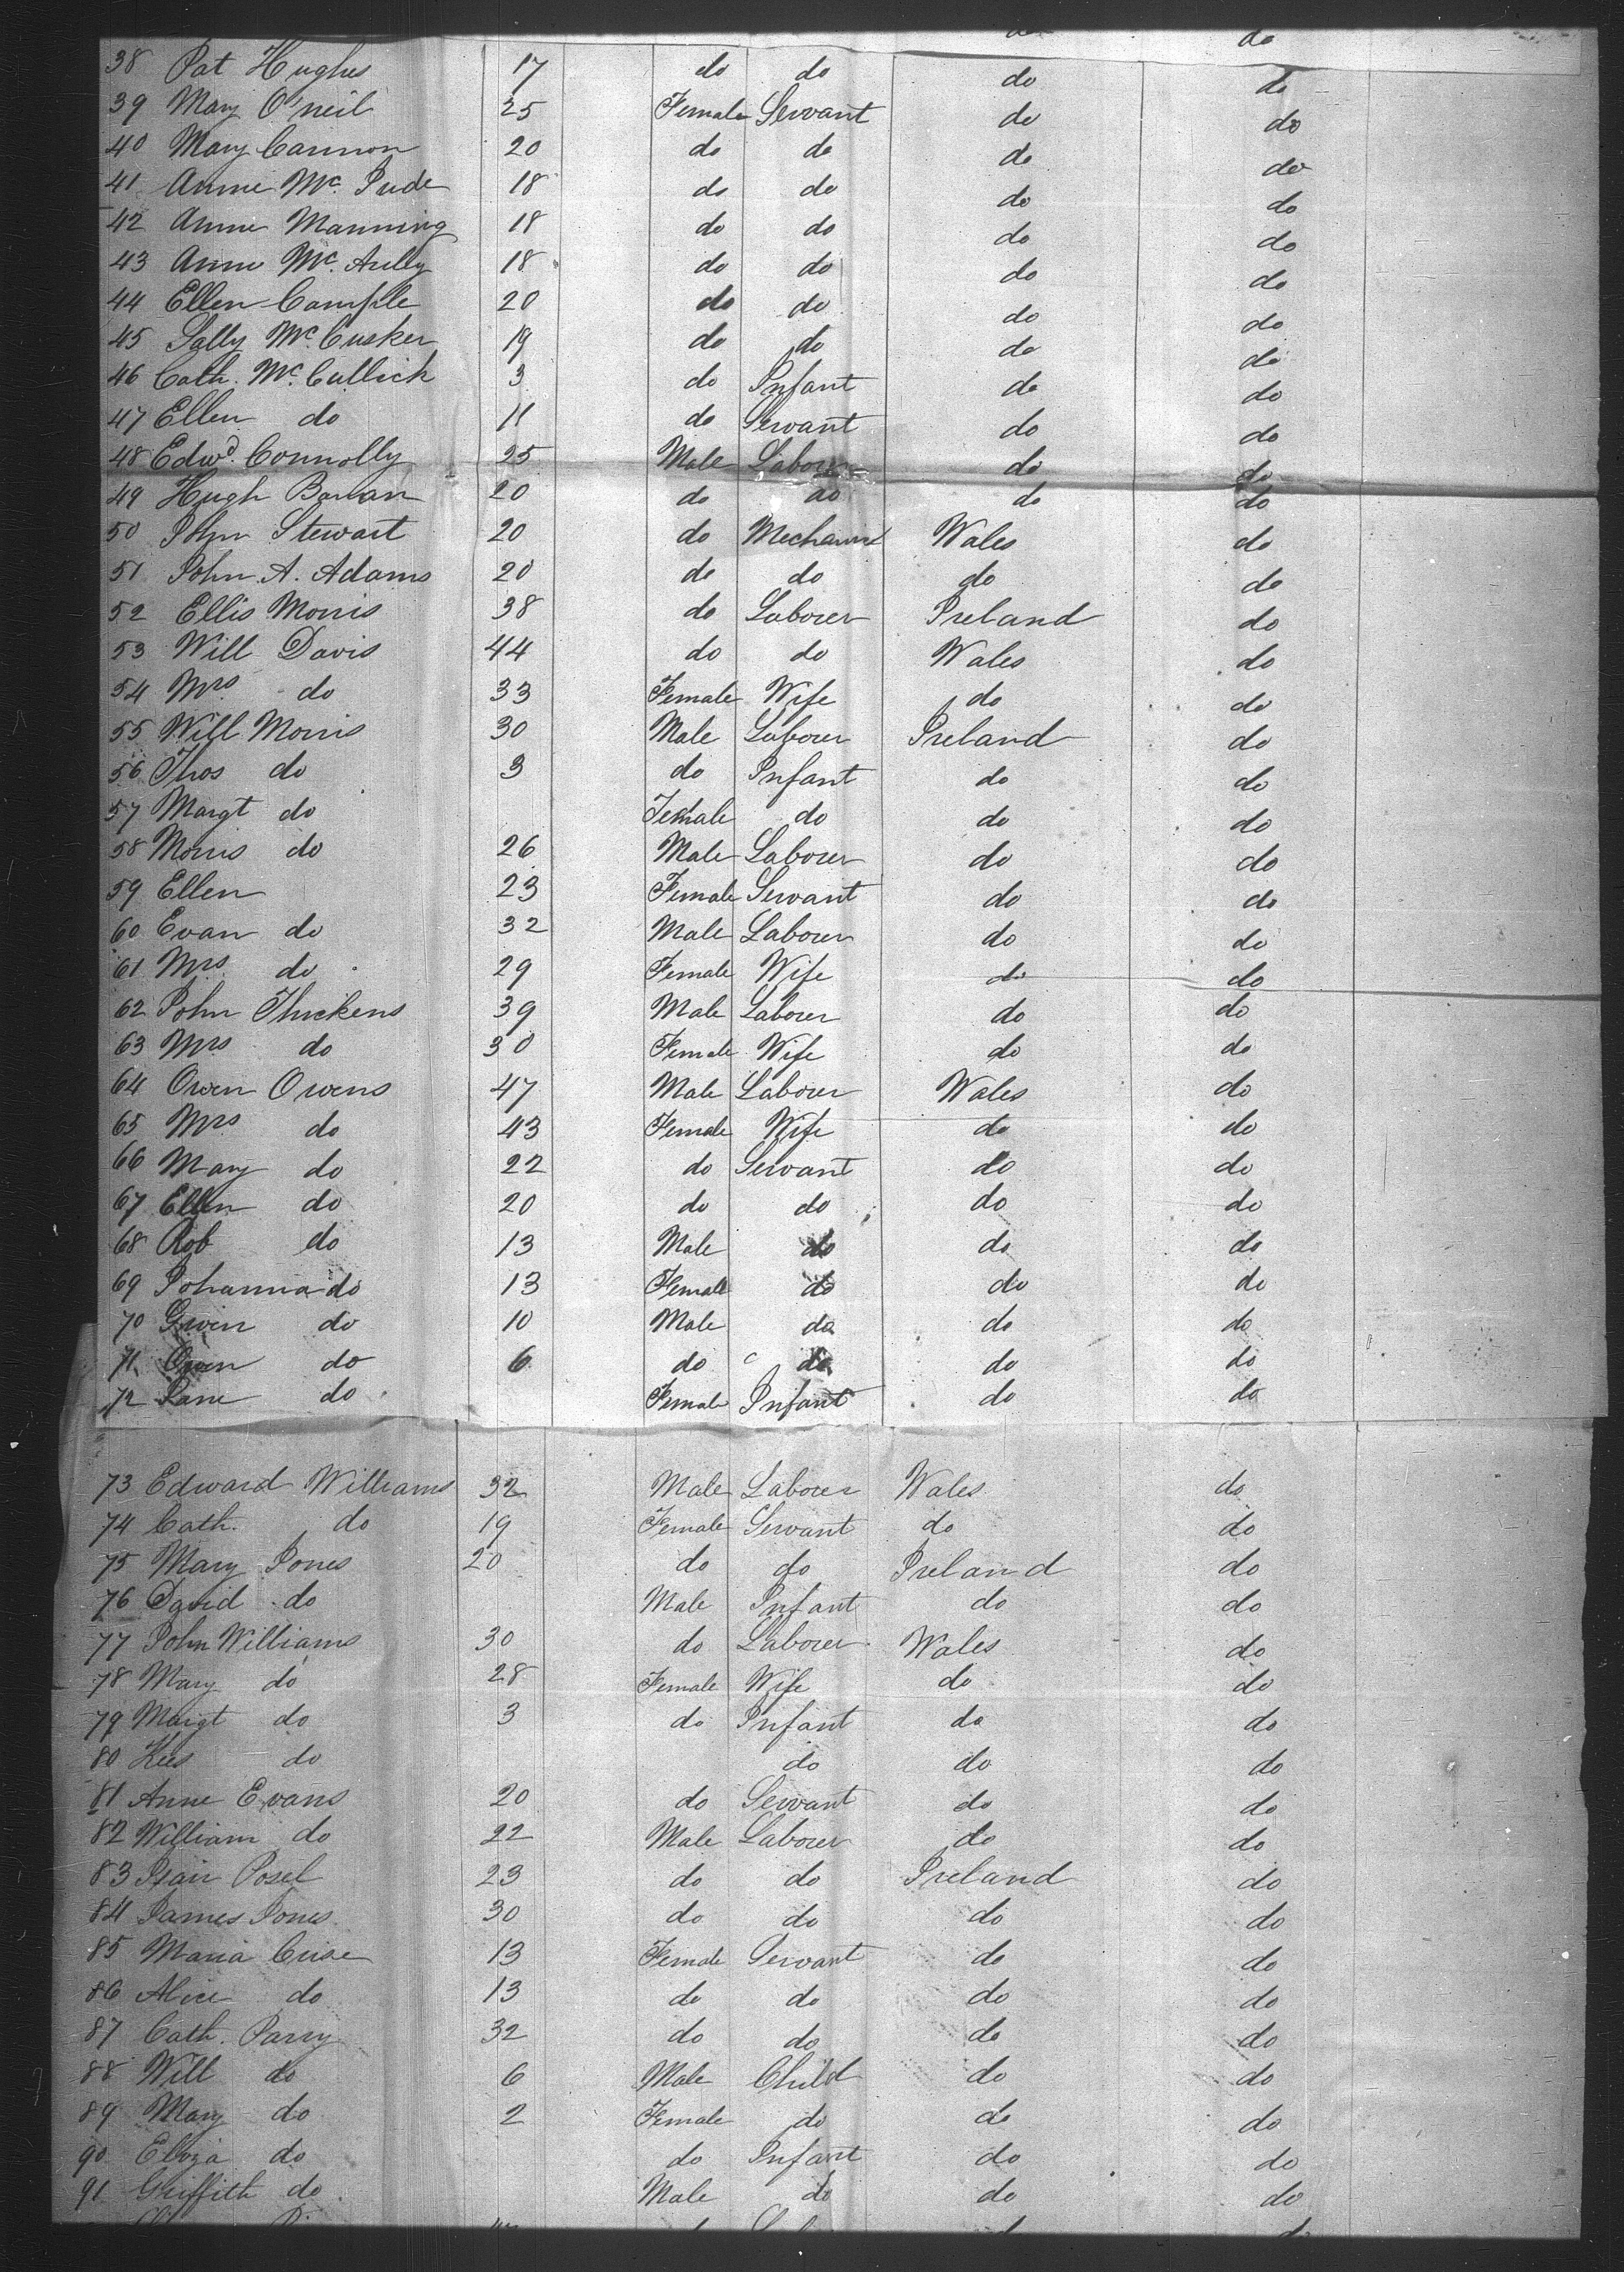 do do
38 Pat Hughes 17 do do do do
39 Mary O'neil 25 Female Servant do do
40 Mary Cannon 20 do do do do
41 Annie Mc. Dude 18 do do do do
42 Anne Manning 18 do do do do
43 Anne Mc. Auley 18 do do do do
44 Ellen Comple 20 do do do do
45 Sally Mc. Cusker 19 do do do do
46 Cath. Mc. Cullick 3 do Infant do do
47 Ellen do 11 do Servant do do
48 Edwd. Connolly 25 Male Laborer do do
49 Hugh Banan 20 do do do do
50 John Stewart 20 do Mechanic Wales do
51 John A. Adams 20 do do do do
52 Ellis Morris 38 do Laborer Ireland do
53 Will Davis 44 do do Wales do
54 Mrs do 33 Female Wife do do
55 Will Morris 30 Male Laborer Ireland do
56 Thos do 3 do Infant do do
57 Margt do Female do do do
58 Morris do 26 Male Laborer do do
59 Ellen 23 Female Servant do do
60 Evan do 32 Male Laborer do do
61 Mrs do 29 Female Wife do do
62 John Thickens 39 Male Laborer do do
63 Mrs do 30 Female Wife do do
64 Owen Owens 47 Male Laborer Wales do
65 Mrs do 43 Female Wife do do
66 Mary do 22 do Servant do do
67 Ellen do 20 do do do do
68 Rob do 13 Male do do do
69 Johanna do 13 Female do do do
70 Gwin do 10 Male do do do
71 Owen do 6 do do do do
72 Jane do Female Infant do do
73 Edward Williams 32 Male Laborer Wales do
74 Cath. do 19 Female Servant do do
75 Mary Jones 20 do do Ireland do
76 David do Male Infant do do
77 John Williams 30 do Laborer Wales do
78 Mary do 28 Female Wife do do
79 Margt do 3 do Infant do do
80 do do do do
81 Anne Evans 20 do Servant do do
82 William do 22 Male Laborer do do
83 Posel 23 do do Ireland do
84 James Jones 30 do do do do
85 Maria Cuse 13 Female Servant do do
86 Alice do 13 do do do do
87 Cath. Parry 32 do do do do
88 Will do 6 Male Child do do
89 Mary do 2 Female do do do
90 Eliza do do Infant do do
91 Griffith do Male do do do